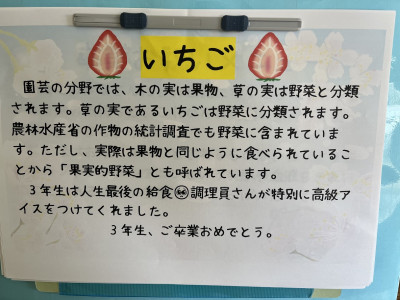 いちご
園芸の分野では、木の実は果物、草の実は野菜と分類
されます。草の実であるいちごは野菜に分類されます。
農林水産省の作物の統計調査でも野菜に含まれていま
す。ただし、実際は果物と同じように食べられているこ
とから「果実的野菜」とも呼ばれています。
３年生は人生最後の給食㊙調理員さんが特別に高級ア
イスをつけてくれました。
３年生、ご卒業おめでとう。